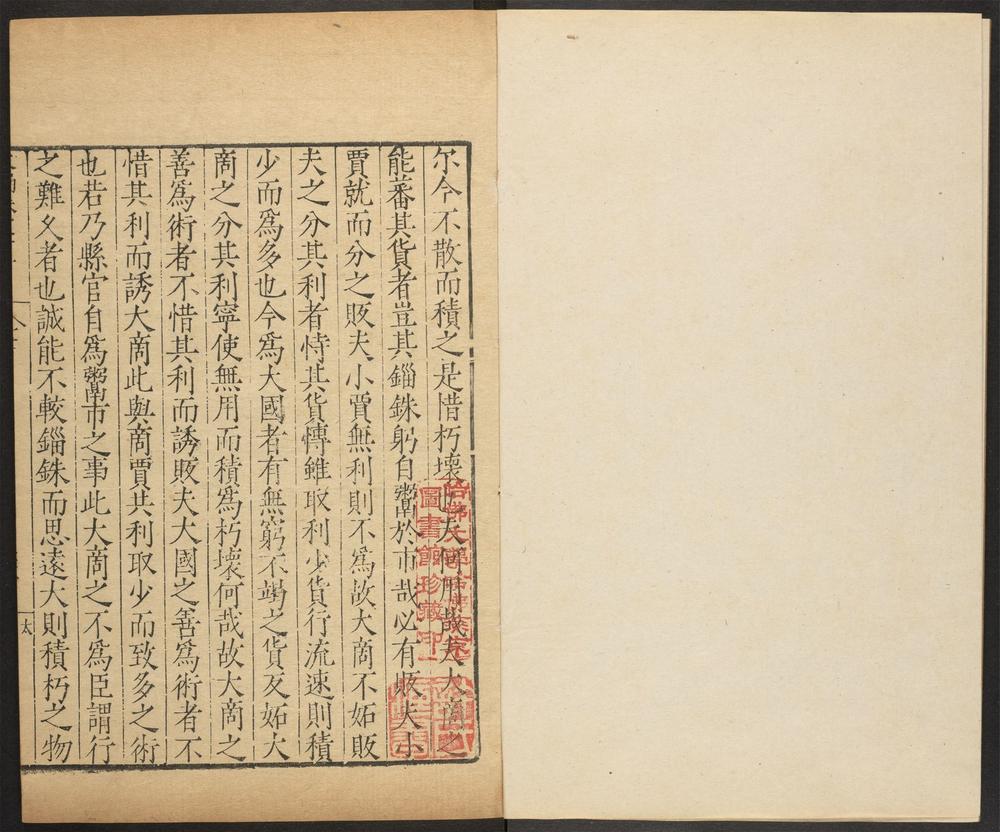 尔今不散而積之是惜朽壞也夫何用哉夫大商之
能蕃其貨者豈其錙銖躬自鬻於市哉必有販夫小
賈就而分之販夫小賈無利則不爲故大商不妬販
夫之分其利者恃其貨慱雖取利少貨行流速則積
少而爲多也今爲大國者有無窮不竭之貨反妬大
商之分其利寧使無用而積爲朽壞何哉故大商之
善爲術者不惜其利而誘販夫大國之善爲術者不
惜其利而誘大商此與商賈共利取少而致多之術
也若乃縣官自爲鬻市之事此大商之不爲臣謂行
之難久者也誠能不較錙銖而思遠大則積朽之物
太
圖書館珍藏印